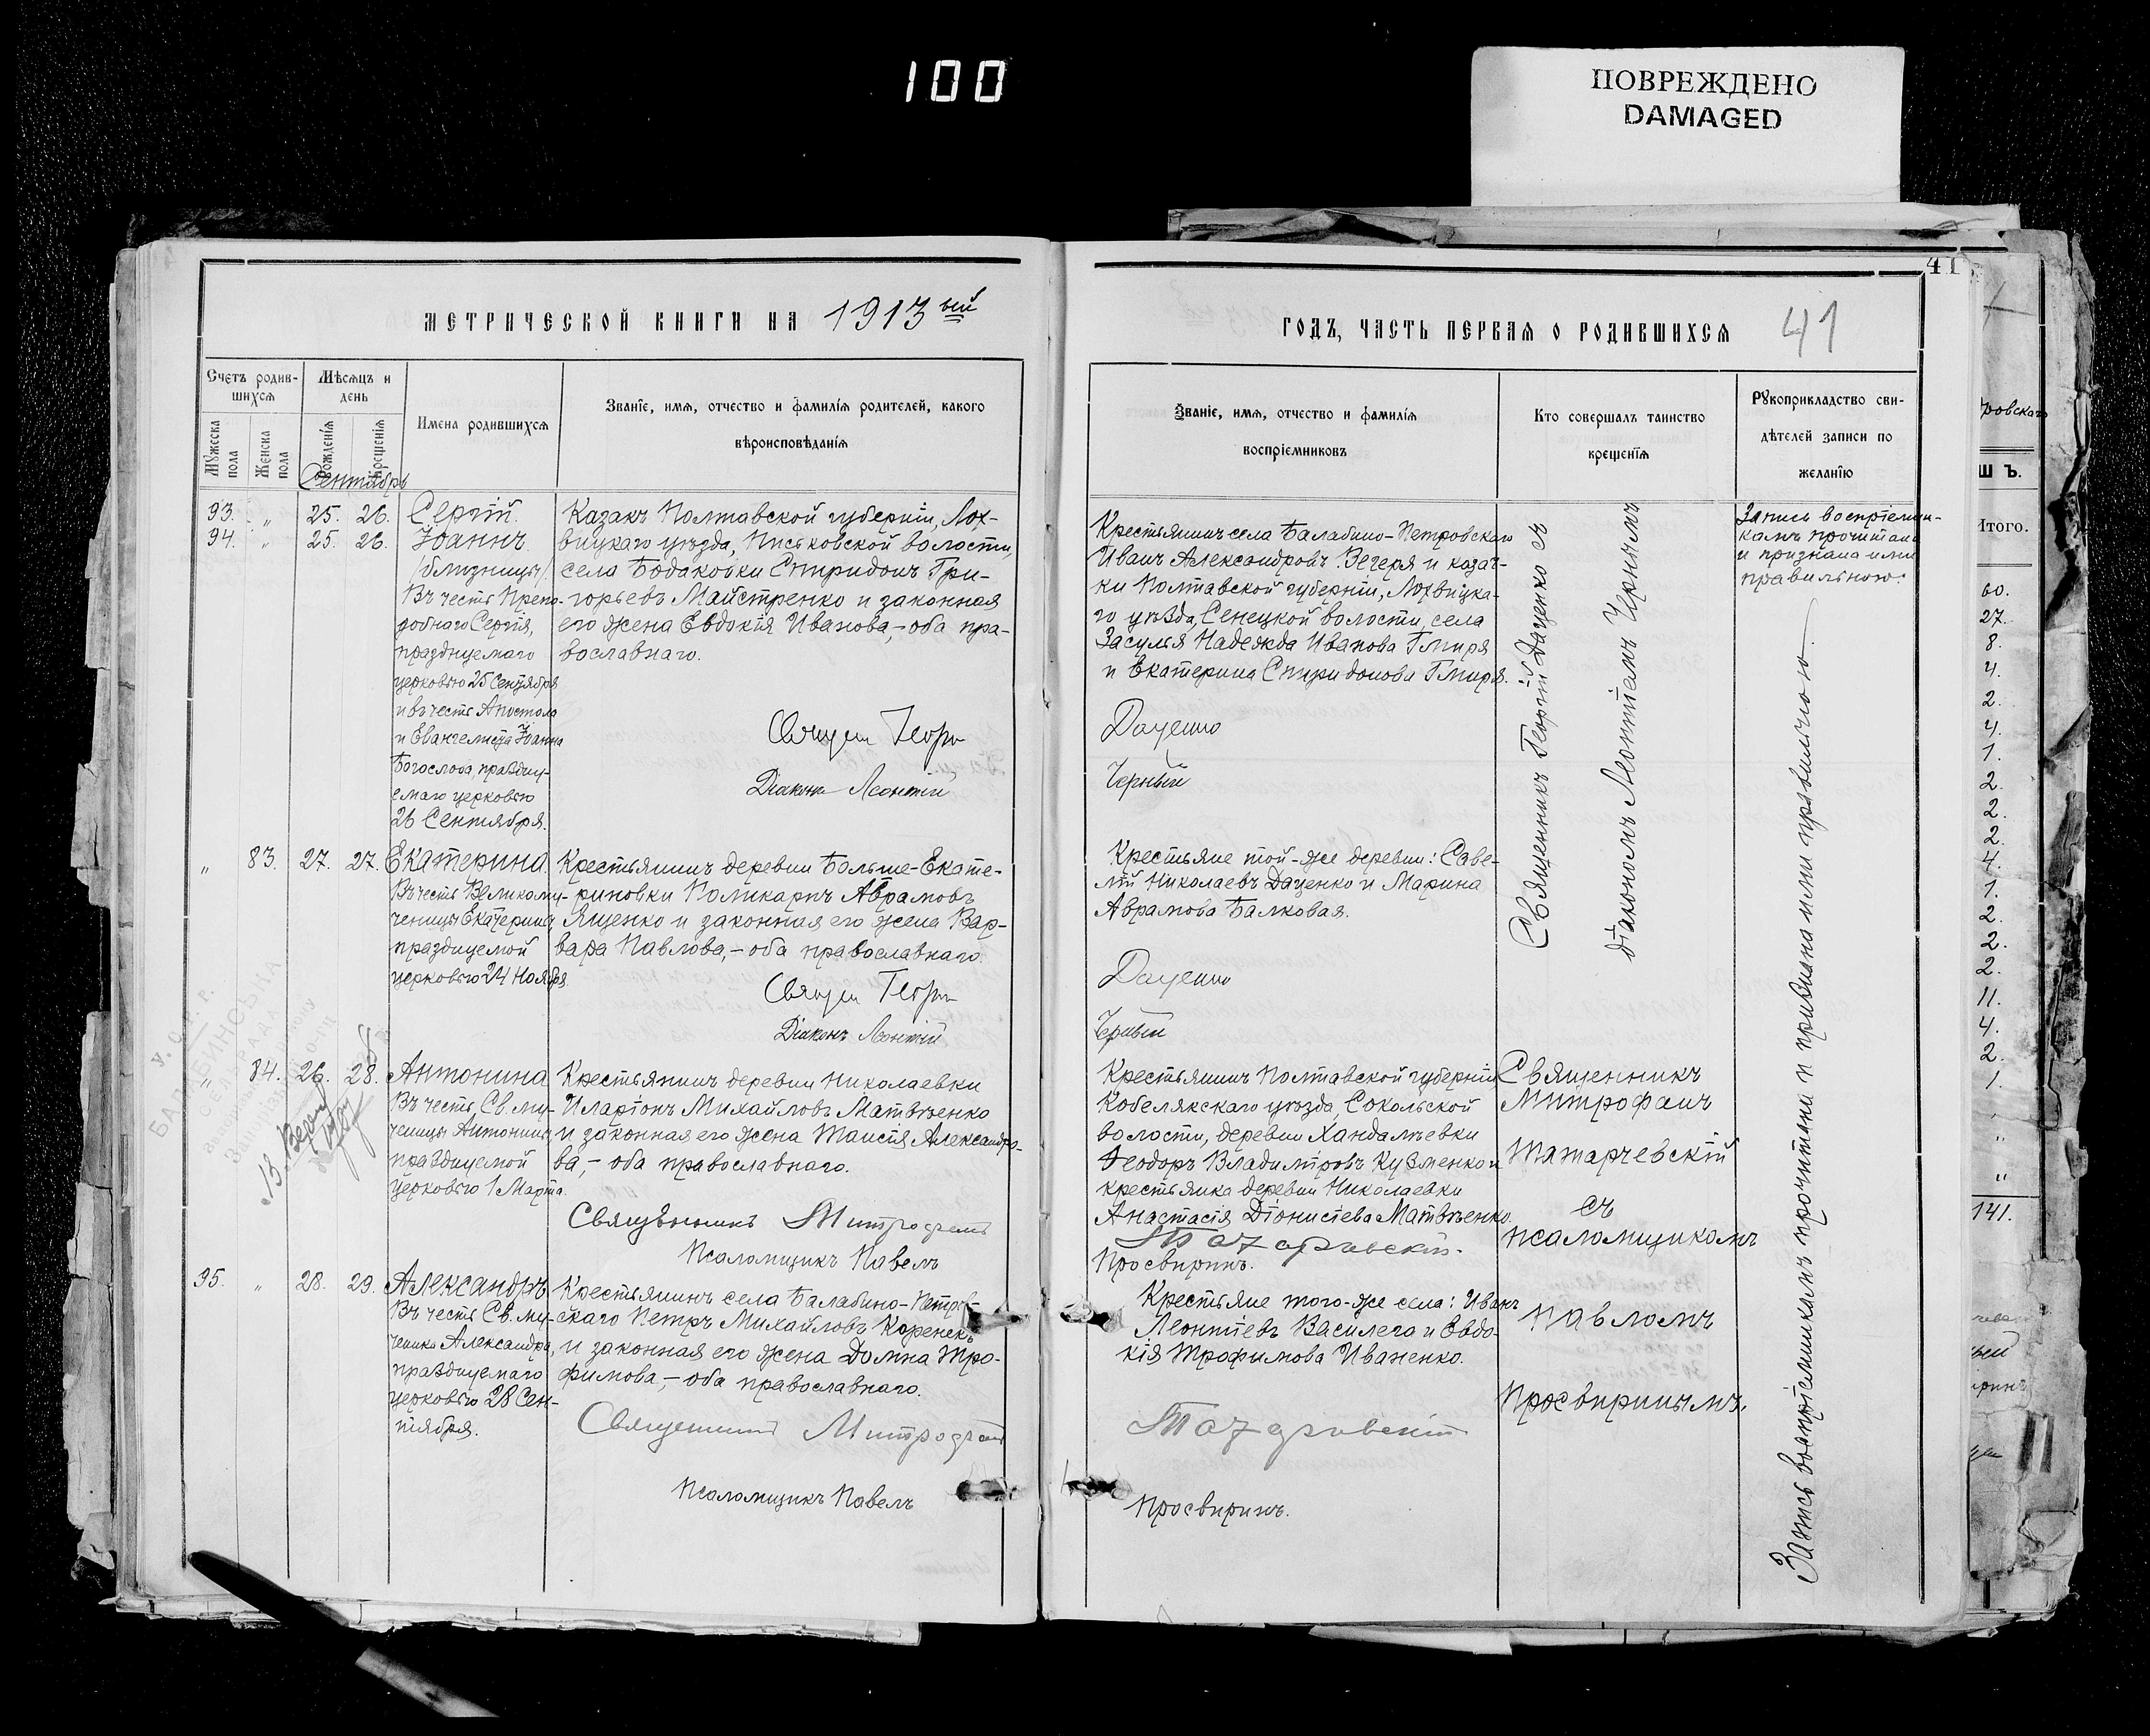 100
ПОВРЕЖДЕНО
DAMAGED
41
МЕТРИЧЕСКОЙ КНИГИ НА 1913 ый
Счетъ родив-
шихся
Мѣсяцъ и
день
Мужеска
пола
Женска
пола
Рожденія
Крещенія
Имена родившихся
Званіе, имя, отчество и фамилія родителей, какого
вѣроисповѣданія
Сентябрь
93. „ 25. 26. Сергій.
94. „ 25. 26. Іоаннъ
(близнецы).
Въ честь Препо-
добнаго Сергія,
празднуемаго
церковью 25 Сентября
и въ честь Апостола
и Евангелиста Іоанна
Богослова, праздну-
емаго церковью
26 Сентября.
Казакъ Полтавской губерніи, Лох-
вицкаго уѣзда, Писковской волости,
села Бодаковки Спиридонъ Гри-
горьевъ Майстренко и законная
его жена Евдокія Иванова,- оба пра-
вославнаго.
Священ Георгі
Діаконъ Леонтій
„ 83. 27. 27. Екатерина
Въ честь Великому-
ченицы Екатерины,
празднуемой
церковью 24 Ноября
Крестьянинъ деревни Больше-Екате-
риновки Поликарпъ Аврамовъ
Ященко и законная его жена Вар-
вара Павлова,- оба православнаго.
Священ Георгі
Діаконъ Леонтій
„ 84. 26. 28. Антонина
Въ честь Св. му-
ченицы Антонины,
празднуемой
церковью 1 Марта.
Крестьянинъ деревни Николаевки
Иларіонъ Михайловъ Матвѣенко
и законная его жена Таисія Александро-
ва,- оба православнаго.
Священникъ Митрофанъ
Псаломщикъ Павелъ
95. „ 28. 29. Александръ
Въ честь Св. му-
ченика Александра,
празднуемаго
церковью 28 Сен-
тября.
Крестьянинъ села Балабино-Петров-
скаго Петръ Михайловъ Коренекъ
и законная его жена Домна Тро-
фимова,- оба православнаго.
Священникъ Митрофанъ
Псаломщикъ Павелъ
У. С. Р. Р.
БАЛАБИНСЬКА
СЕЛЬРАДА
41
ГОДЪ, ЧАСТЬ ПЕРВАЯ О РОДИВШИХСЯ
Званіе, имя, отчество и фамилія
воспріемниковъ
Кто совершалъ таинство
крещенія
Рукоприкладство сви-
дѣтелей записи по
желанію
Крестьянинъ села Балабино-Петровскаго
Иванъ Александровъ Вечеря и казач-
ки Полтавской губерніи, Лохвицка-
го уѣзда, Сенецкой волости, села
Засулья Надежда Иванова Гмиря
и Екатерина Спиридонова Гмиря.
Даценко
Черный
Крестьяне той-же деревни: Саве-
лій Николаевъ Даценко и Марина
Аврамова Балковая.
Даценко
Черный
Крестьянинъ Полтавской губерніи
Кобелякскаго уѣзда, Сокольской
волости, деревни Хандалѣевки
Ѳеодоръ Владиміровъ Кузменко и
крестьянка деревни Николаевки
Анастасія Діонисіева Матвѣенко.
Просвиринъ.
Крестьяне того-же села: Иванъ
Леонтіевъ Василега и Евдо-
кія Трофимова Иваненко.
Просвиринъ.
Священникъ Георгій Даценко съ
діакономъ Леонтіемъ Чернымъ
Священникъ
Митрофанъ
съ
псаломщикомъ
Павломъ
Просвиринымъ.
Запись воспріемни-
камъ прочитана
и признана ими
правильною.
Запись воспріемникамъ прочитана и признана ими правильною.
ровскаго
Ш Ъ.
Итого.
60.
27.
8.
4.
2.
4.
1.
2.
2.
2.
4.
1.
2.
2.
2.
11.
4.
2.
1.
„
„
141.